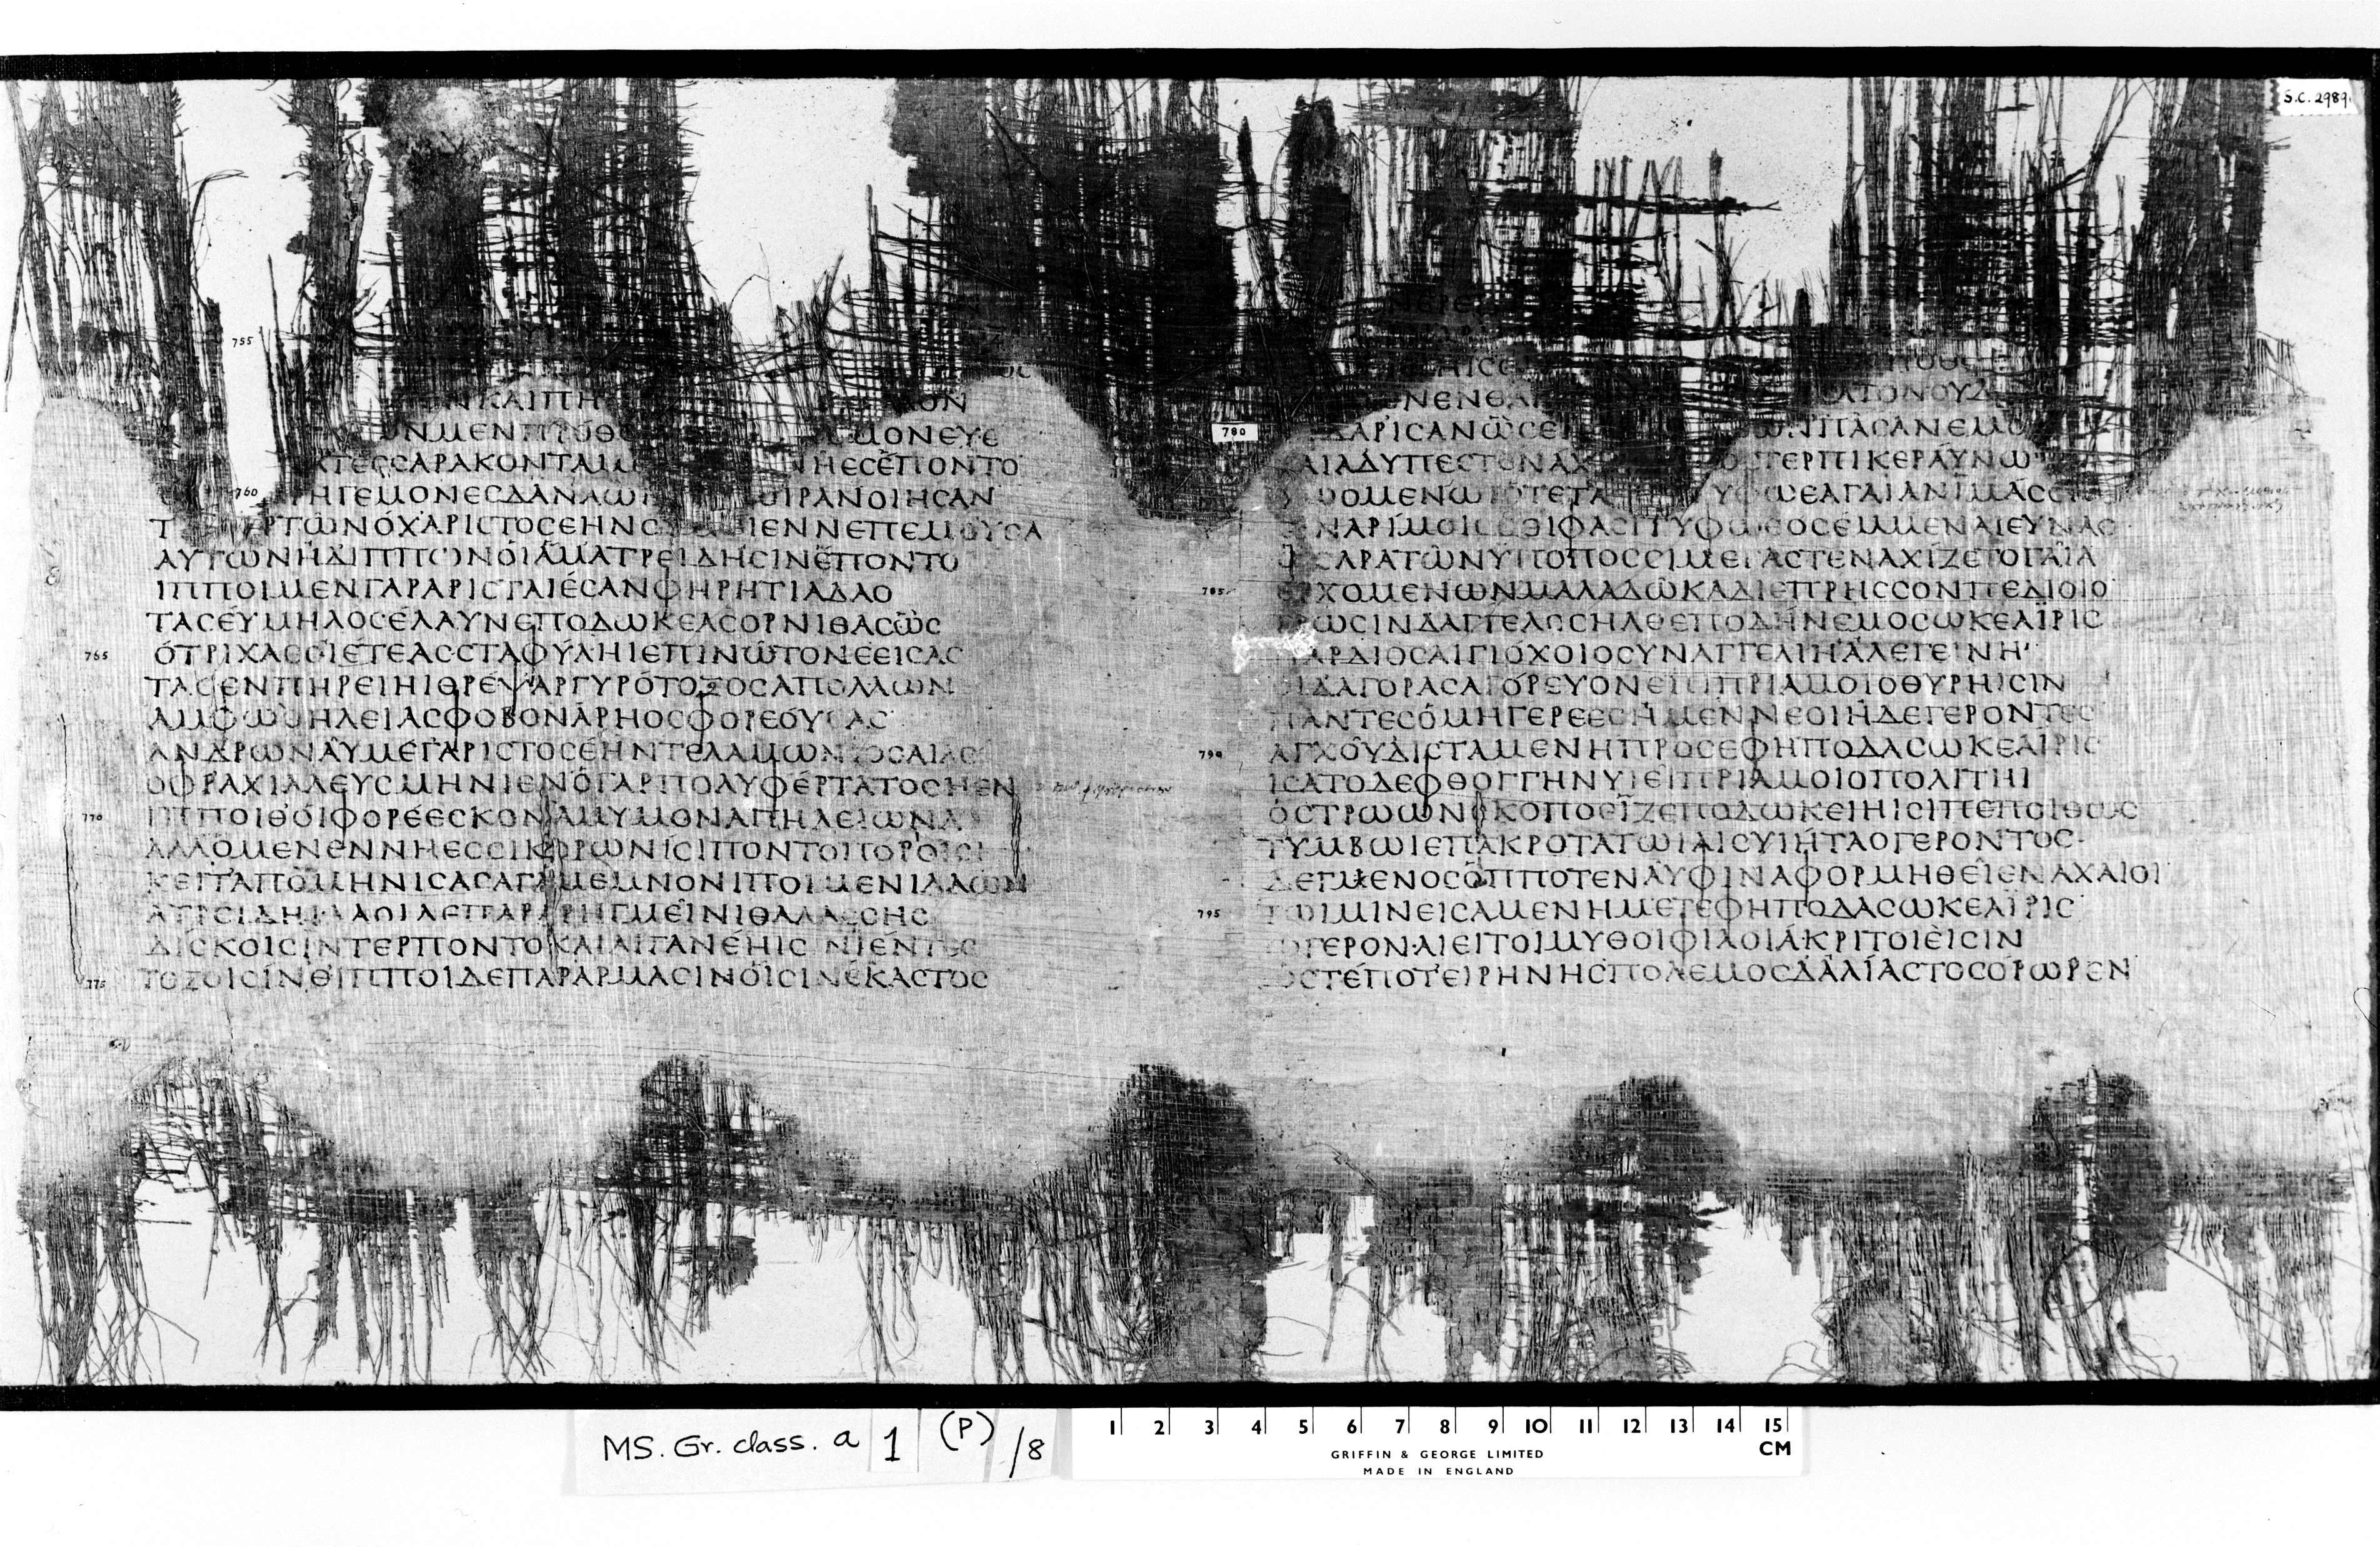 S.C. 2989.
755
ΝΚΑΙΠΗ ΛΙΟΝ
ΥΝΜΕΝΠΡΟΘΟ ΕΜΟΝΕΥΕ
ΤΕϹϹΑΡΑΚΟΝΤΑΜΕ ΝΗΕϹΕΠΟΝΤΟ
760 ΗΓΕΜΟΝΕϹΔΑΝΑΩΝ ΟΙΡΑΝΟΙΗϹΑΝ
Τ ΑΡΤΩΝΟΧΑΡΙϹΤΟϹΕΗΝϹ ΙΕΝΝΕΠΕΜΟΥϹΑ
ΑΥΤΩΝΗΔΙΠΠΩΝΟΙΑΜΑΤΡΕΙΔΗϹΙΝΕΠΟΝΤΟ
ΙΠΠΟΙΜΕΝΓΑΡΑΡΙϹΤΑΙΕϹΑΝΦΗΡΗΤΙΑΔΑΟ
ΤΑϹΕΥΜΗΛΟϹΕΛΑΥΝΕΠΟΔΩΚΕΑϹΟΡΝΙΘΑϹΩϹ
765 ΟΤΡΙΧΑϹΟΙΕΤΕΑϹϹΤΑΦΥΛΗΙΕΠΙΝΩΤΟΝΕΕΙϹΑϹ
ΤΑϹΕΝΠΗΡΕΙΗΙΘΡΕΨΑΡΓΥΡΟΤΟΞΟϹΑΠΟΛΛΩΝ
ΑΜΦΩΘΗΛΕΙΑϹΦΟΒΟΝΑΡΗΟϹΦΟΡΕΟΥϹΑϹ
ΑΝΔΡΩΝΑΥΜΕΓΑΡΙϹΤΟϹΕΗΝΤΕΛΑΜΩΝΙΟϹΑΙΑϹ
ΟΦΡΑΧΙΛΛΕΥϹΜΗΝΙΕΝΟΓΑΡΠΟΛΥΦΕΡΤΑΤΟϹΗΕΝ
770 ΙΠΠΟΙΘΟΙΦΟΡΕΕϹΚΟΝΑΜΥΜΟΝΑΠΗΛΕΙΩΝΑ
ΑΛΛΟΜΕΝΕΝΝΗΕϹϹΙΚΟΡΩΝΙϹΙΠΟΝΤΟΠΟΡΟΙϹΙ
ΚΕΙΤΑΠΟΜΗΝΙϹΑϹΑΓΑΜΕΜΝΟΝΙΠΟΙΜΕΝΙΛΑΩΝ
ΑΤΡΕΙΔΗΙΛΑΟΙΔΕΠΑΡΑΡΗΓΜΕΙΝΙΘΑΛΑϹϹΗϹ
ΔΙϹΚΟΙϹΙΝΤΕΡΠΟΝΤΟΚΑΙΑΙΓΑΝΕΗΙϹΙΝΙΕΝΤΕϹ
775 ΤΟΞΟΙϹΙΝΘΙΠΠΟΙΔΕΠΑΡΑΡΜΑϹΙΝΟΙϹΙΝΕΚΑϹΤΟϹ
ΗΙϹΕ ΠΟΘΕ
ΟΝΕΝΘΑ ΑΤΟΝΟΥΔ
780 ΑΡΙϹΑΝΩϹΕΙ ΠΑϹΑΝΕΜΟ
ΑΙΑΔΥΠΕϹΤΟΝΑΧ ΩϹΤΕΡΠΙΚΕΡΑΥΝΩ
ΧΩΟΜΕΝΩΙΟΤΕΤΑ ΤΥΦΩΕΑΓΑΙΑΝΙΜΑϹϹΗ
ΕΙΝΑΡΙΜΟΙϹΟΘΙΦΑϹΙΤΥΦΩΕΟϹΕΜΜΕΝΑΙΕΥΝΑϹ
ΩϹΑΡΑΤΩΝΥΠΟΠΟϹϹΙΜΕΓΑϹΤΕΝΑΧΙΖΕΤΟΓΑΙΑ
785 ΕΡΧΟΜΕΝΩΝΜΑΛΑΔΩΚΑΔΙΕΠΡΗϹϹΟΝΠΕΔΙΟΙΟ
ΤΡΩϹΙΝΔΑΓΓΕΛΟϹΗΛΘΕΠΟΔΗΝΕΜΟϹΩΚΕΑΙΡΙϹ
ΠΑΡΔΙΟϹΑΙΓΙΟΧΟΙΟϹΥΝΑΓΓΕΛΙΗΙΑΛΕΓΕΙΝΗΙ
ΟΙΔΑΓΟΡΑϹΑΓΟΡΕΥΟΝΕΠΙΠΡΙΑΜΟΙΟΘΥΡΗΙϹΙΝ
ΠΑΝΤΕϹΟΜΗΓΕΡΕΕϹΗΜΕΝΝΕΟΙΗΔΕΓΕΡΟΝΤΕϹ
790 ΑΓΧΟΥΔΙϹΤΑΜΕΝΗΠΡΟϹΕΦΗΠΟΔΑϹΩΚΕΑΙΡΙϹ
ΙϹΑΤΟΔΕΦΘΟΓΓΗΝΥΙΕΙΠΡΙΑΜΟΙΟΠΟΛΙΤΗΙ
ΟϹΤΡΩΩΝϹΚΟΠΟϹΙΖΕΠΟΔΩΚΕΙΗΙϹΙΠΕΠΟΙΘΩϹ
ΤΥΜΒΩΙΕΠΑΚΡΟΤΑΤΩΙΑΙϹΥΙΗΤΑΟΓΕΡΟΝΤΟϹ
ΔΕΓΜΕΝΟϹΟΠΠΟΤΕΝΑΥΦΙΝΑΦΟΡΜΗΘΕΙΕΝΑΧΑΙΟΙ
795 ΤΩΙΜΙΝΕΙϹΑΜΕΝΗΜΕΤΕΦΗΠΟΔΑϹΩΚΕΑΙΡΙϹ
ΩΓΕΡΟΝΑΙΕΙΤΟΙΜΥΘΟΙΦΙΛΟΙΑΚΡΙΤΟΙΕΙϹΙΝ
ΩϹΤΕΠΟΤΕΙΡΗΝΗϹΠΟΛΕΜΟϹΔΑΛΙΑϹΤΟϹΟΡΩΡΕΝ
MS. Gr. class. a 1 (P) /8
1 2 3 4 5 6 7 8 9 10 11 12 13 14 15
CM
GRIFFIN & GEORGE LIMITED
MADE IN ENGLAND